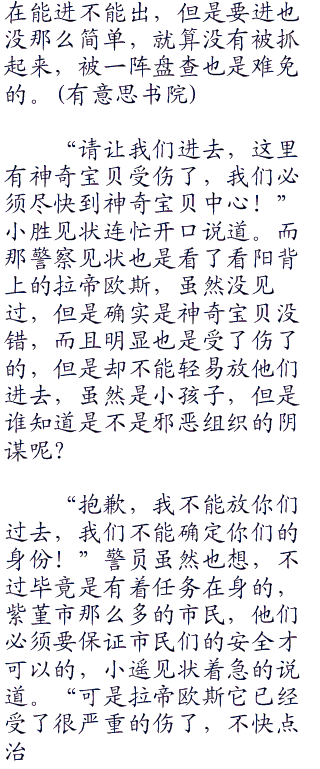 在能进不能出，但是要进也
没那么简单，就算没有被抓
起来，被一阵盘查也是难免
的。(有意思书院)
“请让我们进去，这里
有神奇宝贝受伤了，我们必
须尽快到神奇宝贝中心！”
小胜见状连忙开口说道。而
那警察见状也是看了看阳背
上的拉帝欧斯，虽然没见
过，但是确实是神奇宝贝没
错，而且明显也是受了伤了
的，但是却不能轻易放他们
进去，虽然是小孩子，但是
谁知道是不是邪恶组织的阴
谋呢？
“抱歉，我不能放你们
过去，我们不能确定你们的
身份！”警员虽然也想，不
过毕竟是有着任务在身的，
紫堇市那么多的市民，他们
必须要保证市民们的安全才
可以的，小遥见状着急的说
道。“可是拉帝欧斯它已经
受了很严重的伤了，不快点
治